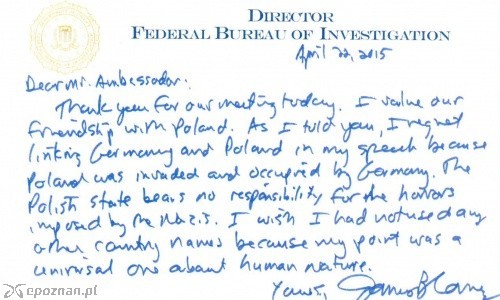 DIRECTOR
FEDERAL BUREAU OF INVESTIGATION
April 22, 2015
Dear Mr. Ambassador:
Thank you for our meeting today. I value our
friendship with Poland. As I told you, I regret
linking Germany and Poland in my speech because
Poland was invaded and occupied by Germany. The
Polish state bears no responsibility for the horrors
imposed by the Nazis. I wish I had not used any
other country names because my point was a
universal one about human nature.
Yours, James B. Comey
epoznan.pl